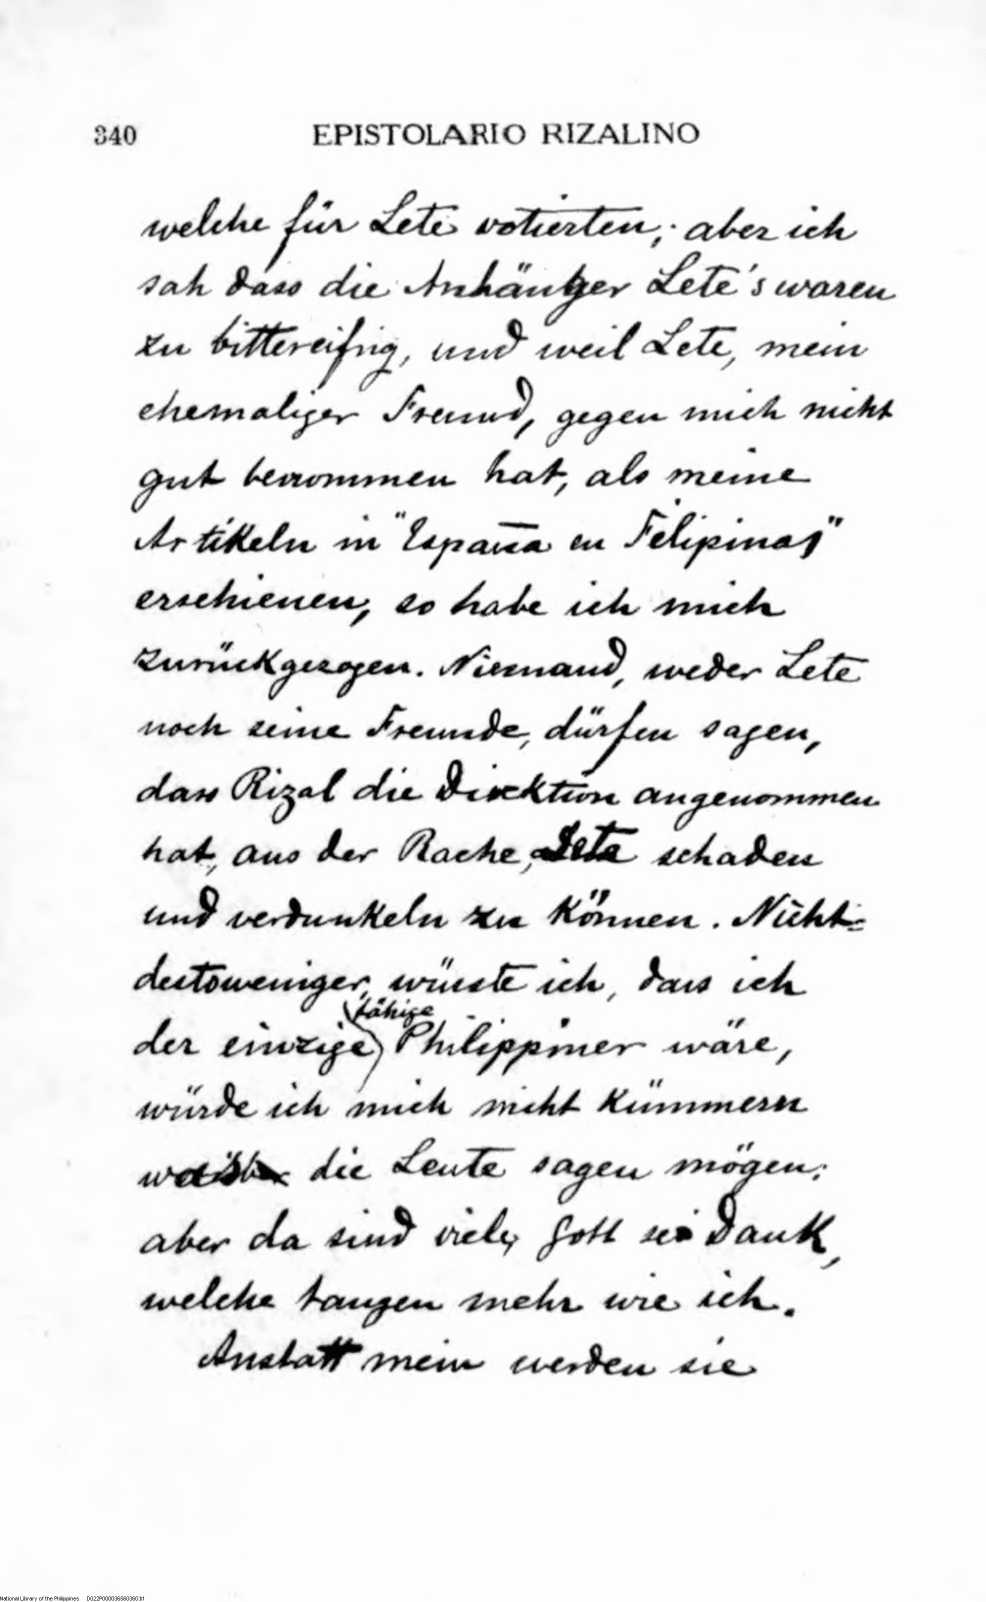 340 EPISTOLARIO RIZALINO
welche für Lete votierten; aber ich
sah dass die Anhänger Lete's waren
zu bittereifrig, und weil Lete, mein
ehemaliger Freund, gegen mich nicht
gut benommen hat, als meine
Artikeln in "España en Filipinas"
erschienen, so habe ich mich
zurückgezogen. Niemand, weder Lete
noch seine Freunde, dürfen sagen,
dass Rizal die Direktion angenommen
hat, aus der Rache, Lete schaden
und verdunkeln zu können. Nicht=
destoweniger, wüsste ich, dass ich
fähige
der einzige Philippiner wäre,
würde ich mich nicht kümmern
die Leute sagen mögen;
aber da sind viele, Gott sei Dank,
welche taugen mehr wie ich.
Anstatt mein werden sie
National Library of the Philippines